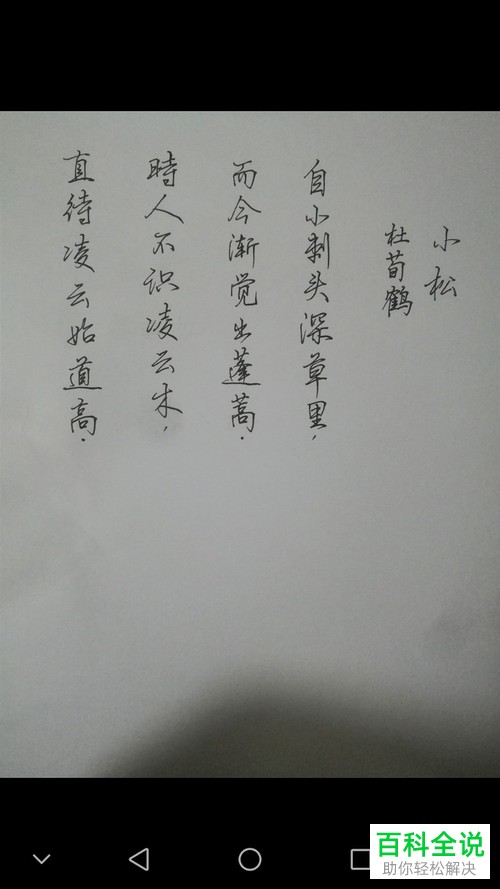 小松
杜荀鹤
自小刺头深草里，
而今渐觉出蓬蒿．
時人不识凌云木，
直待凌云始道高．
百科全说
助你轻松解决